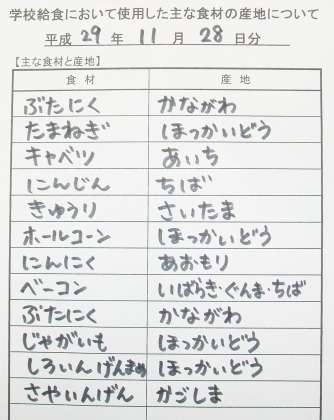 学校給食において使用した主な食材の産地について
平成 29 年 11 月 28 日分
【主な食材と産地】
食材 産地
ぶたにく かながわ
たまねぎ ほっかいどう
キャベツ あいち
にんじん ちば
きゅうり さいたま
ホールコーン ほっかいどう
にんにく あおもり
ベーコン いばらき・ぐんま・ちば
ぶたにく かながわ
じゃがいも ほっかいどう
しろいんげんまめ ほっかいどう
さやいんげん かごしま